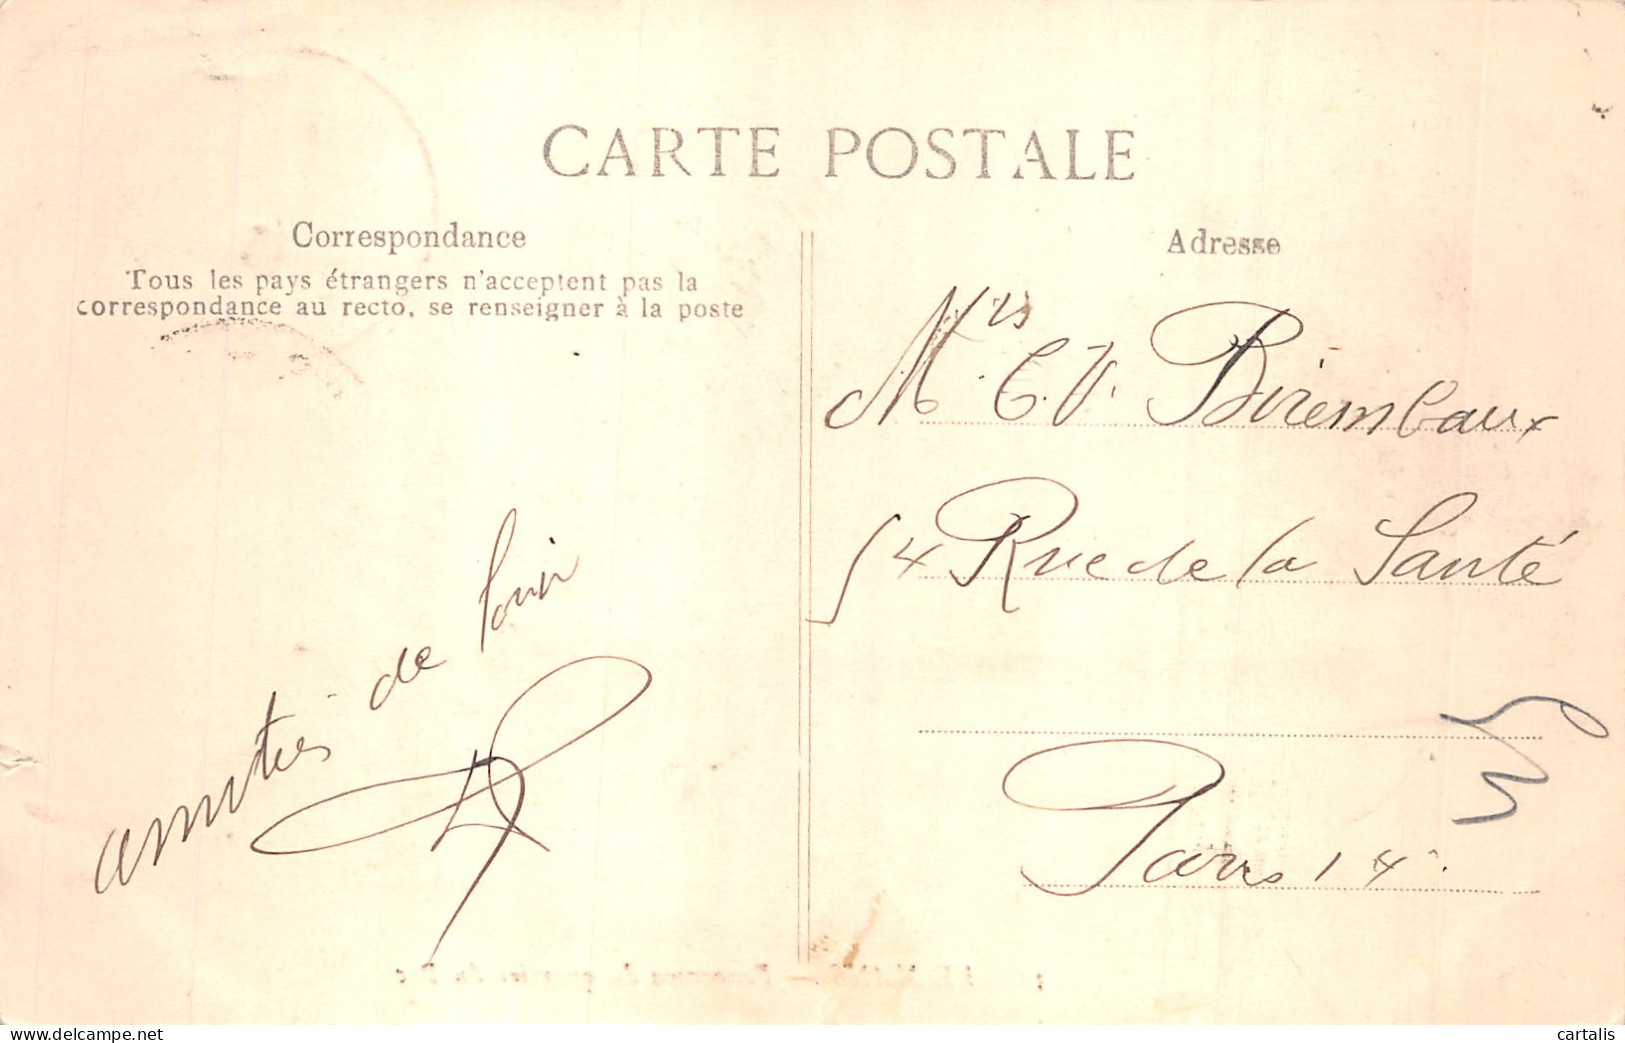 CARTE POSTALE
Correspondance
Tous les pays étrangers n'acceptent pas la
correspondance au recto, se renseigner à la poste
amitiés de loin
Adresse
C. V. Birembaux
54 Rue de la Santé
Paris 14
www.delcampe.net
cartalis